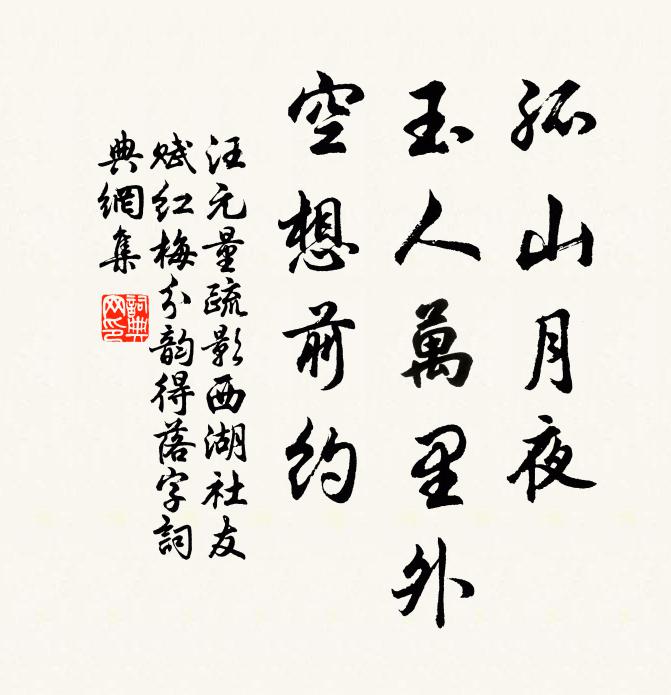 孤山月夜
玉人萬里外
空想前約
汪元量疏影西湖社友
賦红梅分韵得落字詞
典網集
詞典網印